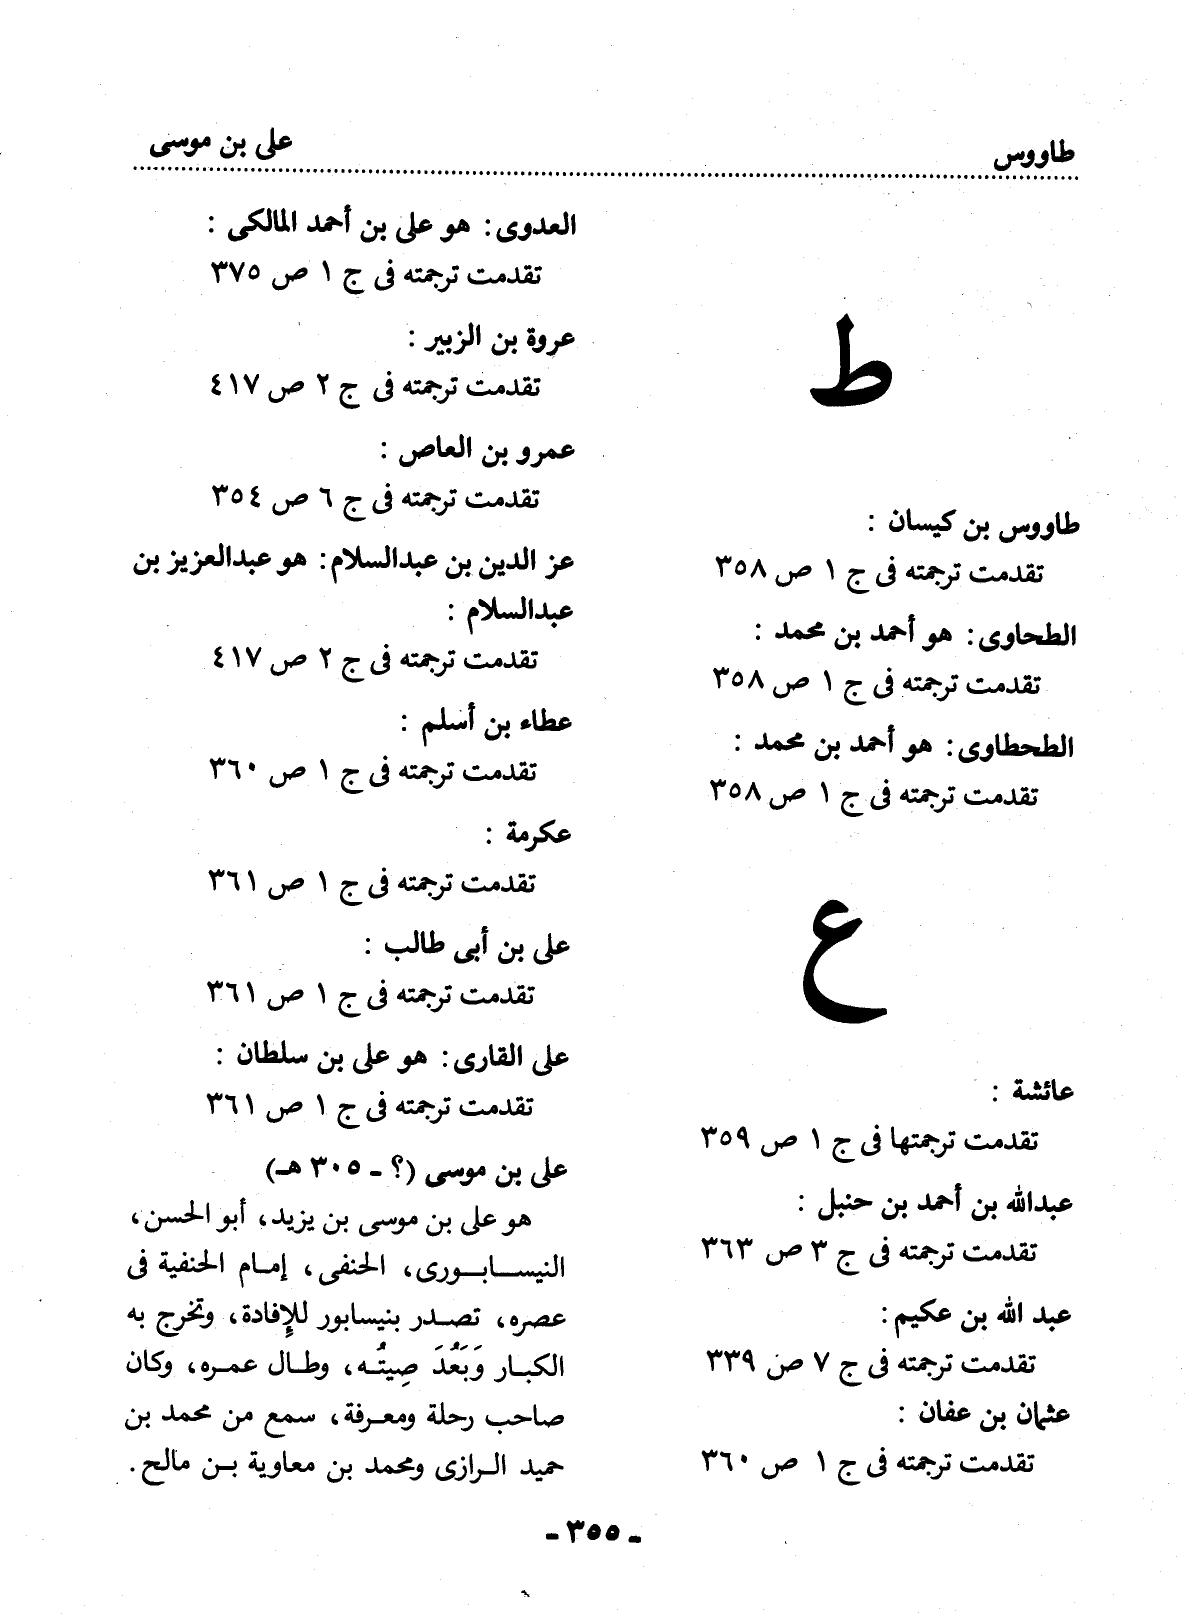 طاووس
على بن موسى
ط
طاووس بن كيسان :
تقدمت ترجمته فى ج ١ ص ٣٥٨
الطحاوى: هو أحمد بن محمد :
تقدمت ترجمته فى ج ١ ص ٣٥٨
الطحطاوى: هو أحمد بن محمد :
تقدمت ترجمته فى ج ١ ص ٣٥٨
ع
عائشة :
تقدمت ترجمتها فى ج ١ ص ٣٥٩
عبدالله بن أحمد بن حنبل :
تقدمت ترجمته فى ج ٣ ص ٣٦٣
عبد الله بن عكيم:
تقدمت ترجمته فى ج ٧ ص ٣٣٩
عثمان بن عفان :
تقدمت ترجمته فى ج ١ ص ٣٦٠
العدوى: هو على بن أحمد المالكى :
تقدمت ترجمته فى ج ١ ص ٣٧٥
عروة بن الزبير :
تقدمت ترجمته فى ج ٢ ص ٤١٧
عمرو بن العاص :
تقدمت ترجمته فى ج ٦ ص ٣٥٤
عز الدين بن عبدالسلام: هو عبدالعزيز بن
عبدالسلام :
تقدمت ترجمته فى ج ٢ ص ٤١٧
عطاء بن أسلم :
تقدمت ترجمته فى ج ١ ص ٣٦٠
عكرمة :
تقدمت ترجمته فى ج ١ ص ٣٦١
على بن أبى طالب :
تقدمت ترجمته فى ج ١ ص ٣٦١
على القارى: هو على بن سلطان :
تقدمت ترجمته فى ج ١ ص ٣٦١
على بن موسى (؟ ـ ٣٠٥ هـ)
هو على بن موسى بن يزيد، أبو الحسن،
النيسابورى، الحنفى، إمام الحنفية فى
عصره، تصدر بنيسابور للإفادة، وتخرج به
الكبار وَبَعُدَ صِيتُه، وطال عمره، وكان
صاحب رحلة ومعرفة، سمع من محمد بن
حميد الرازى ومحمد بن معاوية بن مالح.
ـ ٣٥٥ ـ